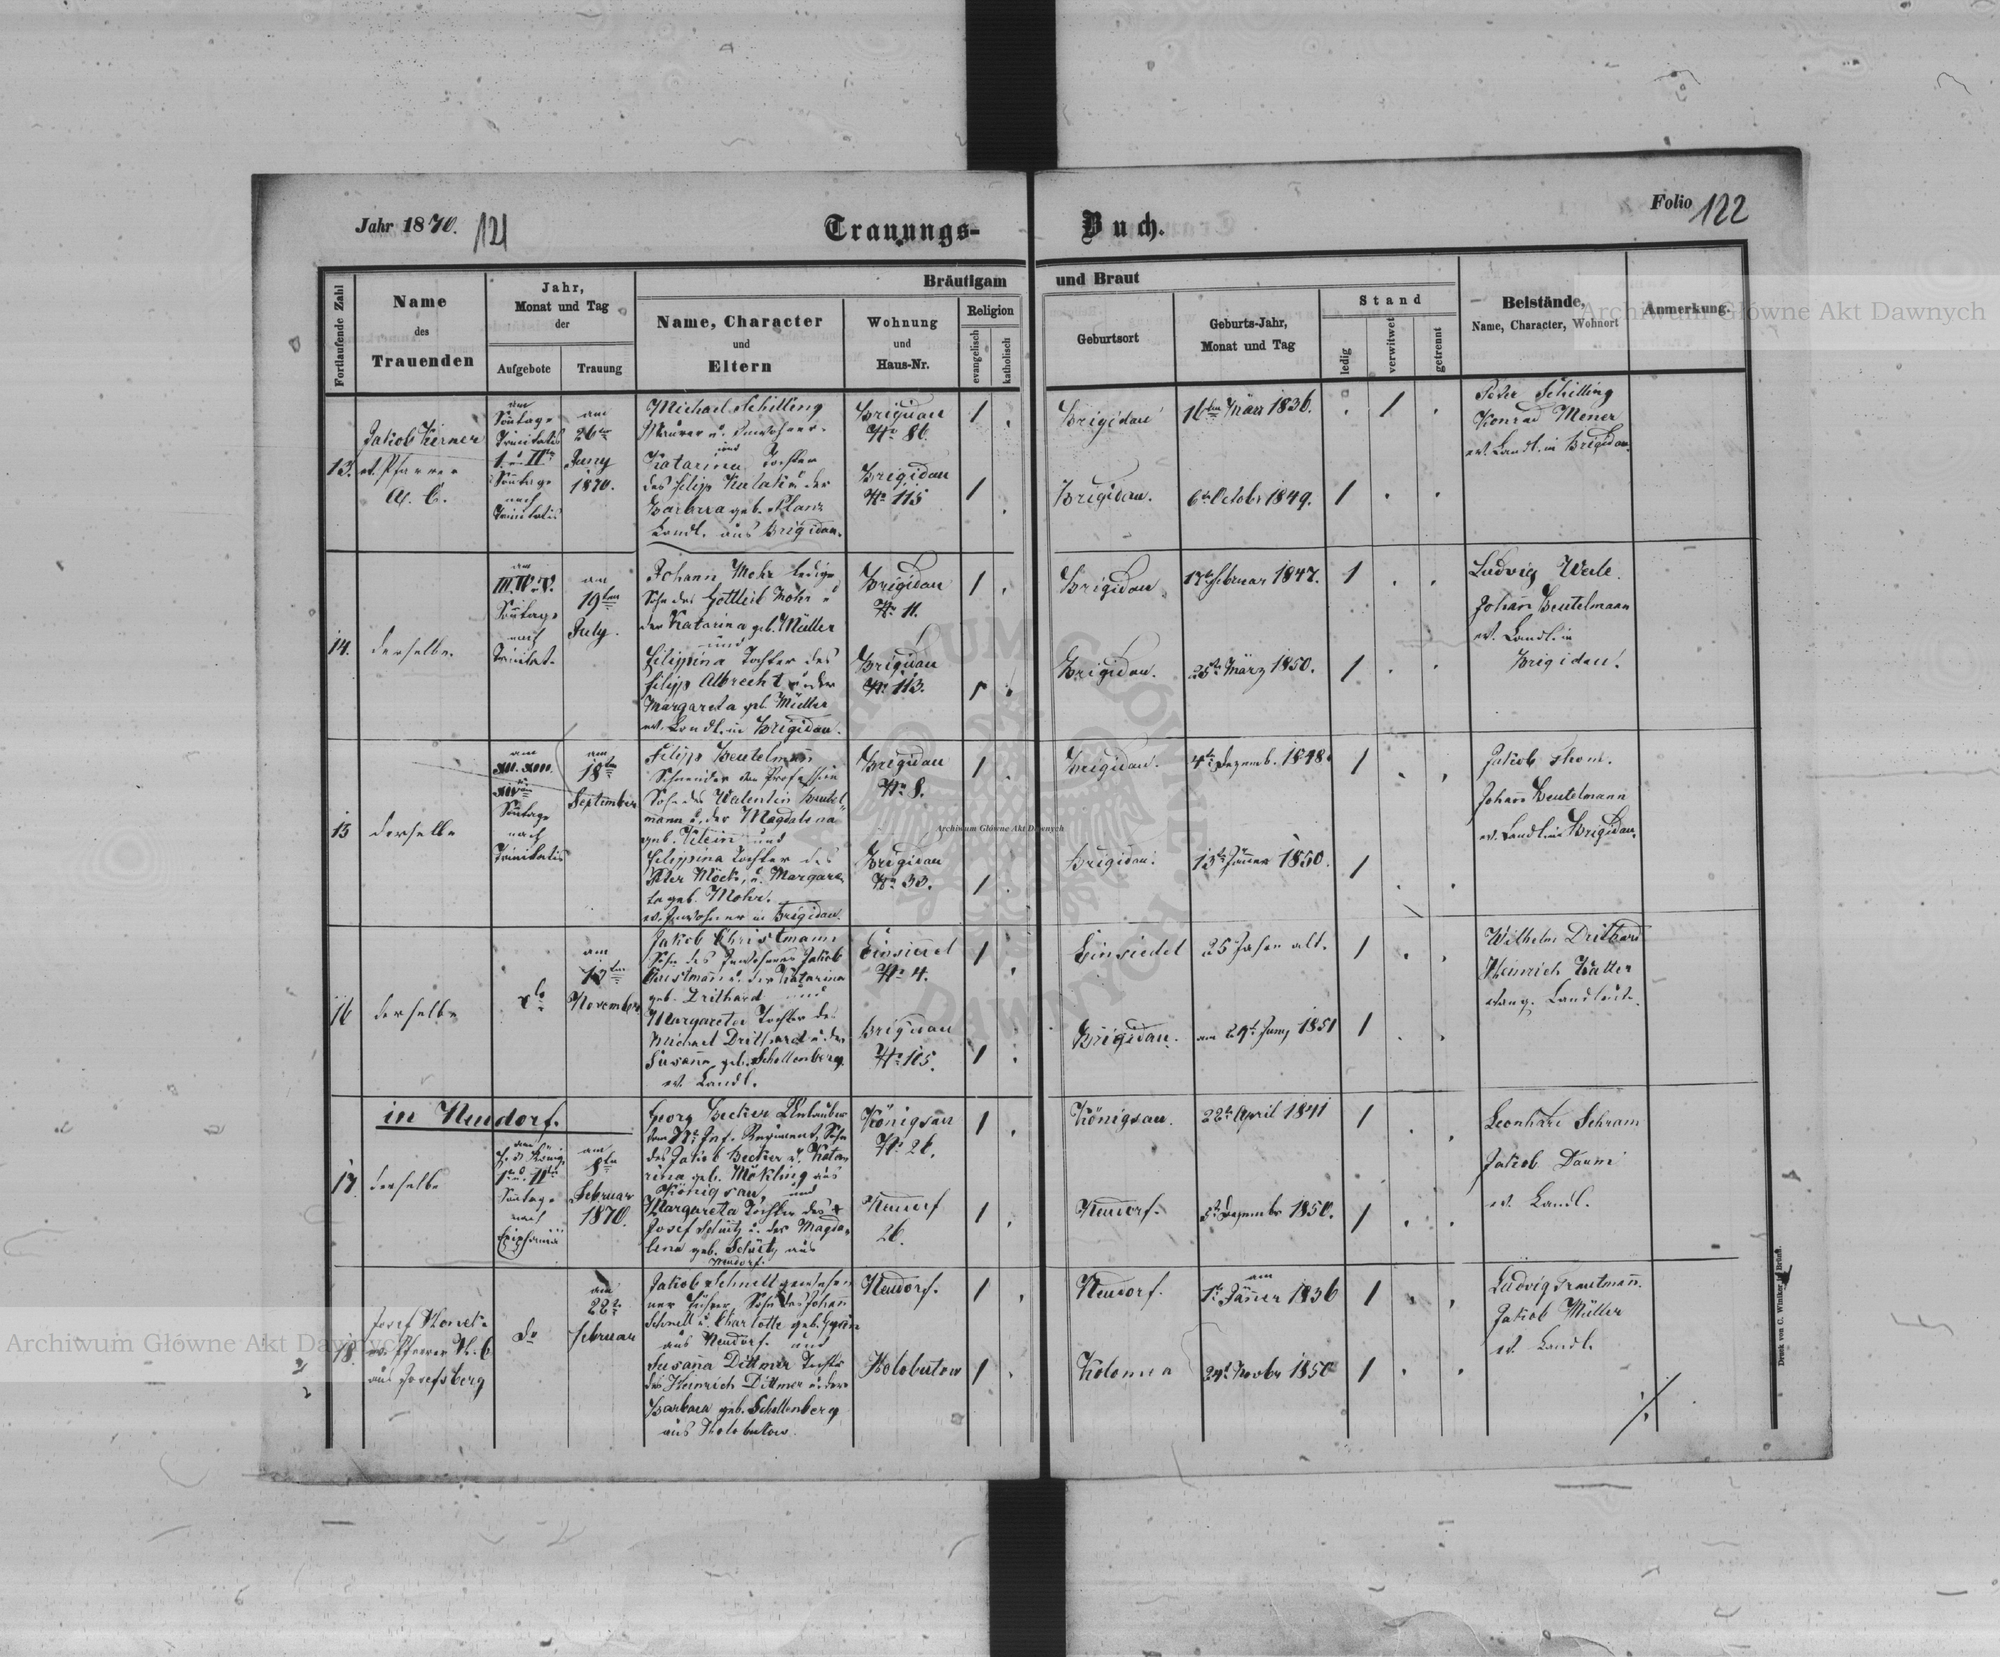 Jahr 1870. 121
Trauungs-
Buch.
Folio 122
Fortlaufende Zahl
Name
des
Trauenden
Jahr,
Monat und Tag
der
Aufgebote
Trauung
Bräutigam
und Braut
Name, Character
und
Eltern
Wohnung
und
Haus-Nr.
Religion
evangelisch
katholisch
Geburtsort
Geburts-Jahr,
Monat und Tag
Stand
ledig
verwitwet
getrennt
Beistände,
Name, Character, Wohnort
Anmerkung.
13.
Jakob
ev. Pfarrer
A. C.
am
Sontage
Trinitatis
I. u. II
Sontage
nach
Trinitatis
am
26ten
Juny
1870.
Michael Schilling
und
Katarina Tochter
des Filipp
Barbara geb.
Landl. aus Brigidau.
Brigidau
Nr 86.
Brigidau
Nr 115
Brigidau
Brigidau.
16ten März 1836.
6te Octobr 1849.
Peter Schilling
Konrad
ev. Landl. in Brigidau.
14.
derselbe.
am
III. IV. V.
Sontage
nach
Trinitat.
am
19ten
July.
Johann Mohr ledig
Sohn des Gottlieb Mohr u
der Katarina geb. Müller
und
Filippina Tochter des
Filipp Albrecht u der
Margareta geb. Müller
ev. Landl. in Brigidau.
Brigidau
Nr 11.
Brigidau
Nr 113.
Brigidau
Brigidau.
17te Februar 1847.
25te März 1850.
Ludvig
Johan Beutelmann
ev. Landl. in
Brigidau.
15
derselbe
am
XII. XIII.
u
XIV
Sontage
nach
Trinitatis
am
18ten
September
Filipp Beutelman
Schneider von Profession
Sohn des Valentin Beutel-
mann u. der Magdalena
geb. Klein und
Filippina Tochter des
Peter Möck, u. Margare-
ta geb. Mohr.
ev. Inwohner in Brigidau.
Brigidau
Nr 8.
Brigidau
Nr 33.
Brigidau.
Brigidau.
4te Dezemb. 1848.
13te Jänner 1850.
Jakob Thom.
Johan Beutelmann
ev. Landl. in Brigidau.
16
derselbe
am
13ten
November
Jakob Christmann
Sohn des Inwohners Jakob
Christmann u. der Katarina
geb. Drithard und
Margareta Tochter des
Michael Drithard u der
Susana geb. Schollenberg
ev. Landl.
Einsiedel
Nr 4.
Brigidau
Nr 115.
Einsiedel
Brigidau.
25 Jahre alt.
am 29te Juny 1851
Wilhelm Drithard
Heinrich
evang. Landleute.
in Neudorf.
17.
derselbe
am
I. u. II
Sontage
nach
Epiphania
am
8ten
Februar
1870.
Georg Becker Beurlaubter
Inf. Regiment, Sohn
des Jakob Becker u. Kata-
rina geb. Mökling aus
Königsau, und
Margareta Tochter des
Josef Schütz u. der Magda-
lena geb. Schütz aus
Neudorf.
Königsau
Nr 26.
Neudorf
26.
Königsau.
Neudorf.
22te April 1841
Dezembr 1850.
Leonhard Schram
Jakob Daum
ev. Landl.
18.
Josef
ev. Pfarrer H. C.
aus Josefsberg
do
am
22te
Februar
Jakob Schnell
Sohn des Johann
Schnell u. Charlotte geb.
aus Neudorf. und
Susana Dittmer Tochter
des Heinrich Dittmer u. der
Barbara geb. Schollenberg
aus Holobutow.
Neudorf.
Holobutow
Neudorf.
Kolomea
am
1te Jänner 1836
24te Novbr 1850
Ludvig Trautmann.
Jakob Müller
ev. Landl.
Druck von C. Winiker in Brünn.
Archiwum Główne Akt Dawnych
Archiwum Główne Akt Dawnych
Archiwum Główne Akt Dawnych
ARCHIWUM GŁÓWNE AKT DAWNYCH